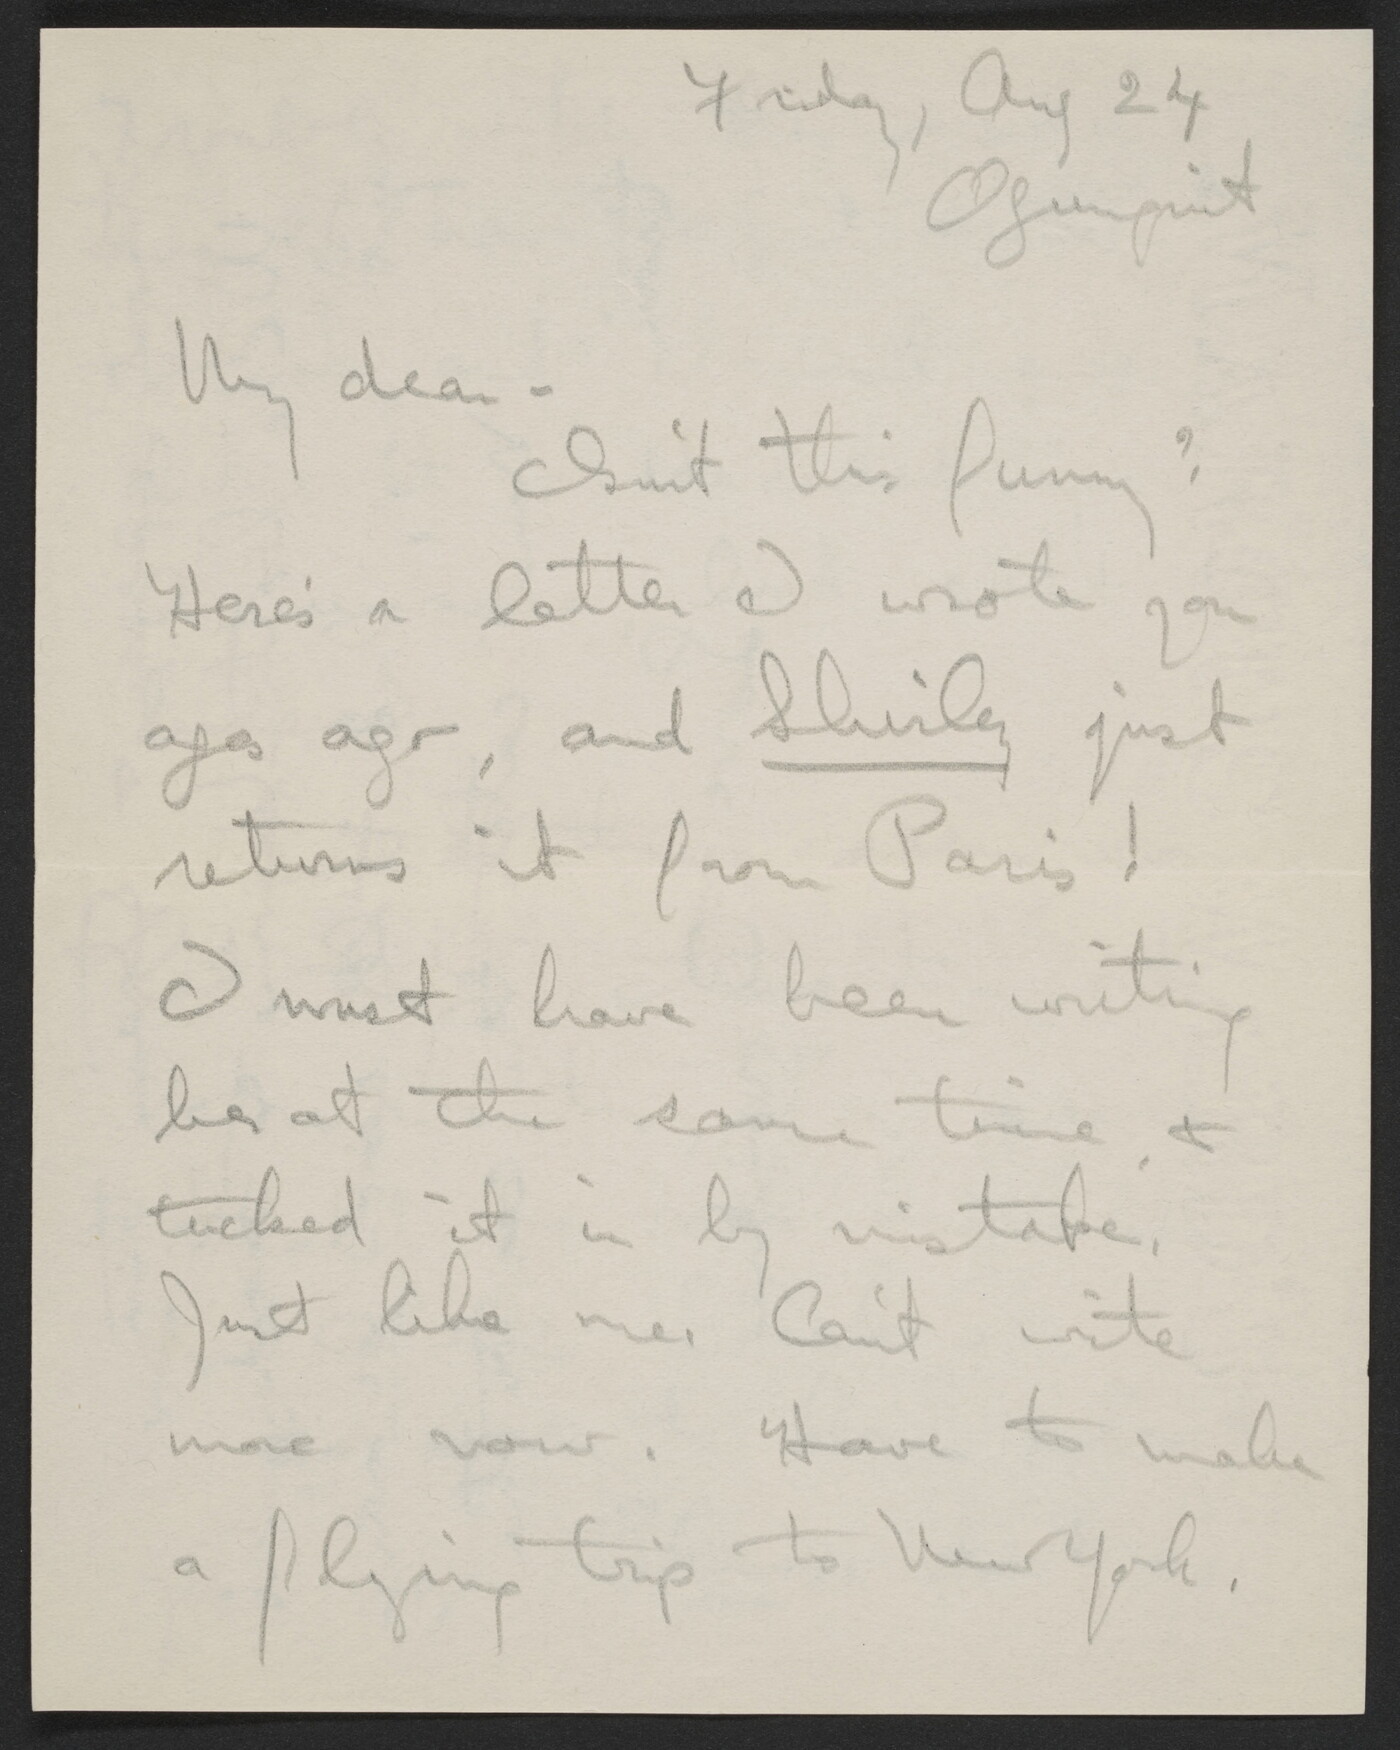 Friday, Aug 24
Ogunquit
My dear -
Isn't this funny?
Here's a letter I wrote you
ages ago, and Shirley just
returns it from Paris!
I must have been writing
her at the same time, &
tucked it in by mistake.
Just like me. Can't write
more now. Have to make
a flying trip to New York.